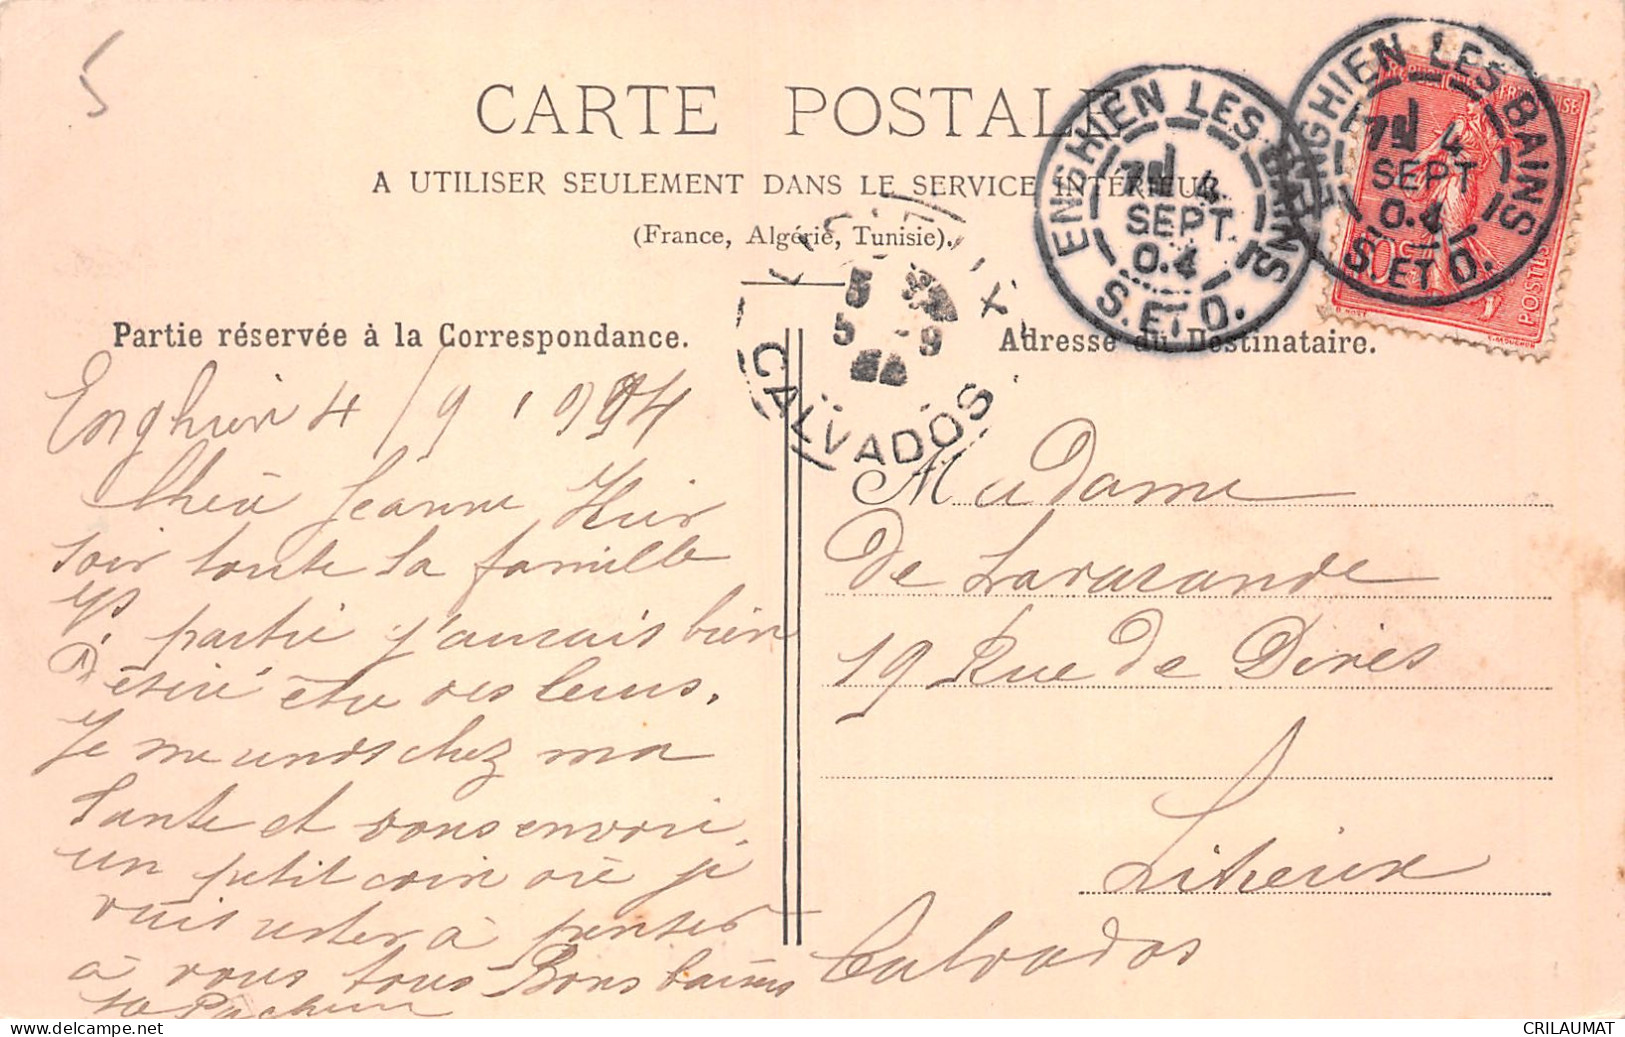 5
CARTE POSTALE
A UTILISER SEULEMENT DANS LE SERVICE INTÉRIEUR
(France, Algérie, Tunisie).
ENGHIEN LES BAINS
7E 4
SEPT.
04
S. ET O.
ENGHIEN LES BAINS
7E 4
SEPT
04
S. ET O.
POSTES
LISIEUX
5
5 9
04
CALVADOS
Partie réservée à la Correspondance.
Adresse du Destinataire.
Enghien 4/9 1904
Chère Jeanne Hier
soir toute la famille
est partie j'aurais bien
désiré être des leurs.
Je me rends chez ma
tante et vous envoie
un petit coin où je
vais rester à penser
à vous tous Bons baisers
Madame
de Lavarande
19 Rue de Dives
Lisieux
Calvados
CRILAUMAT